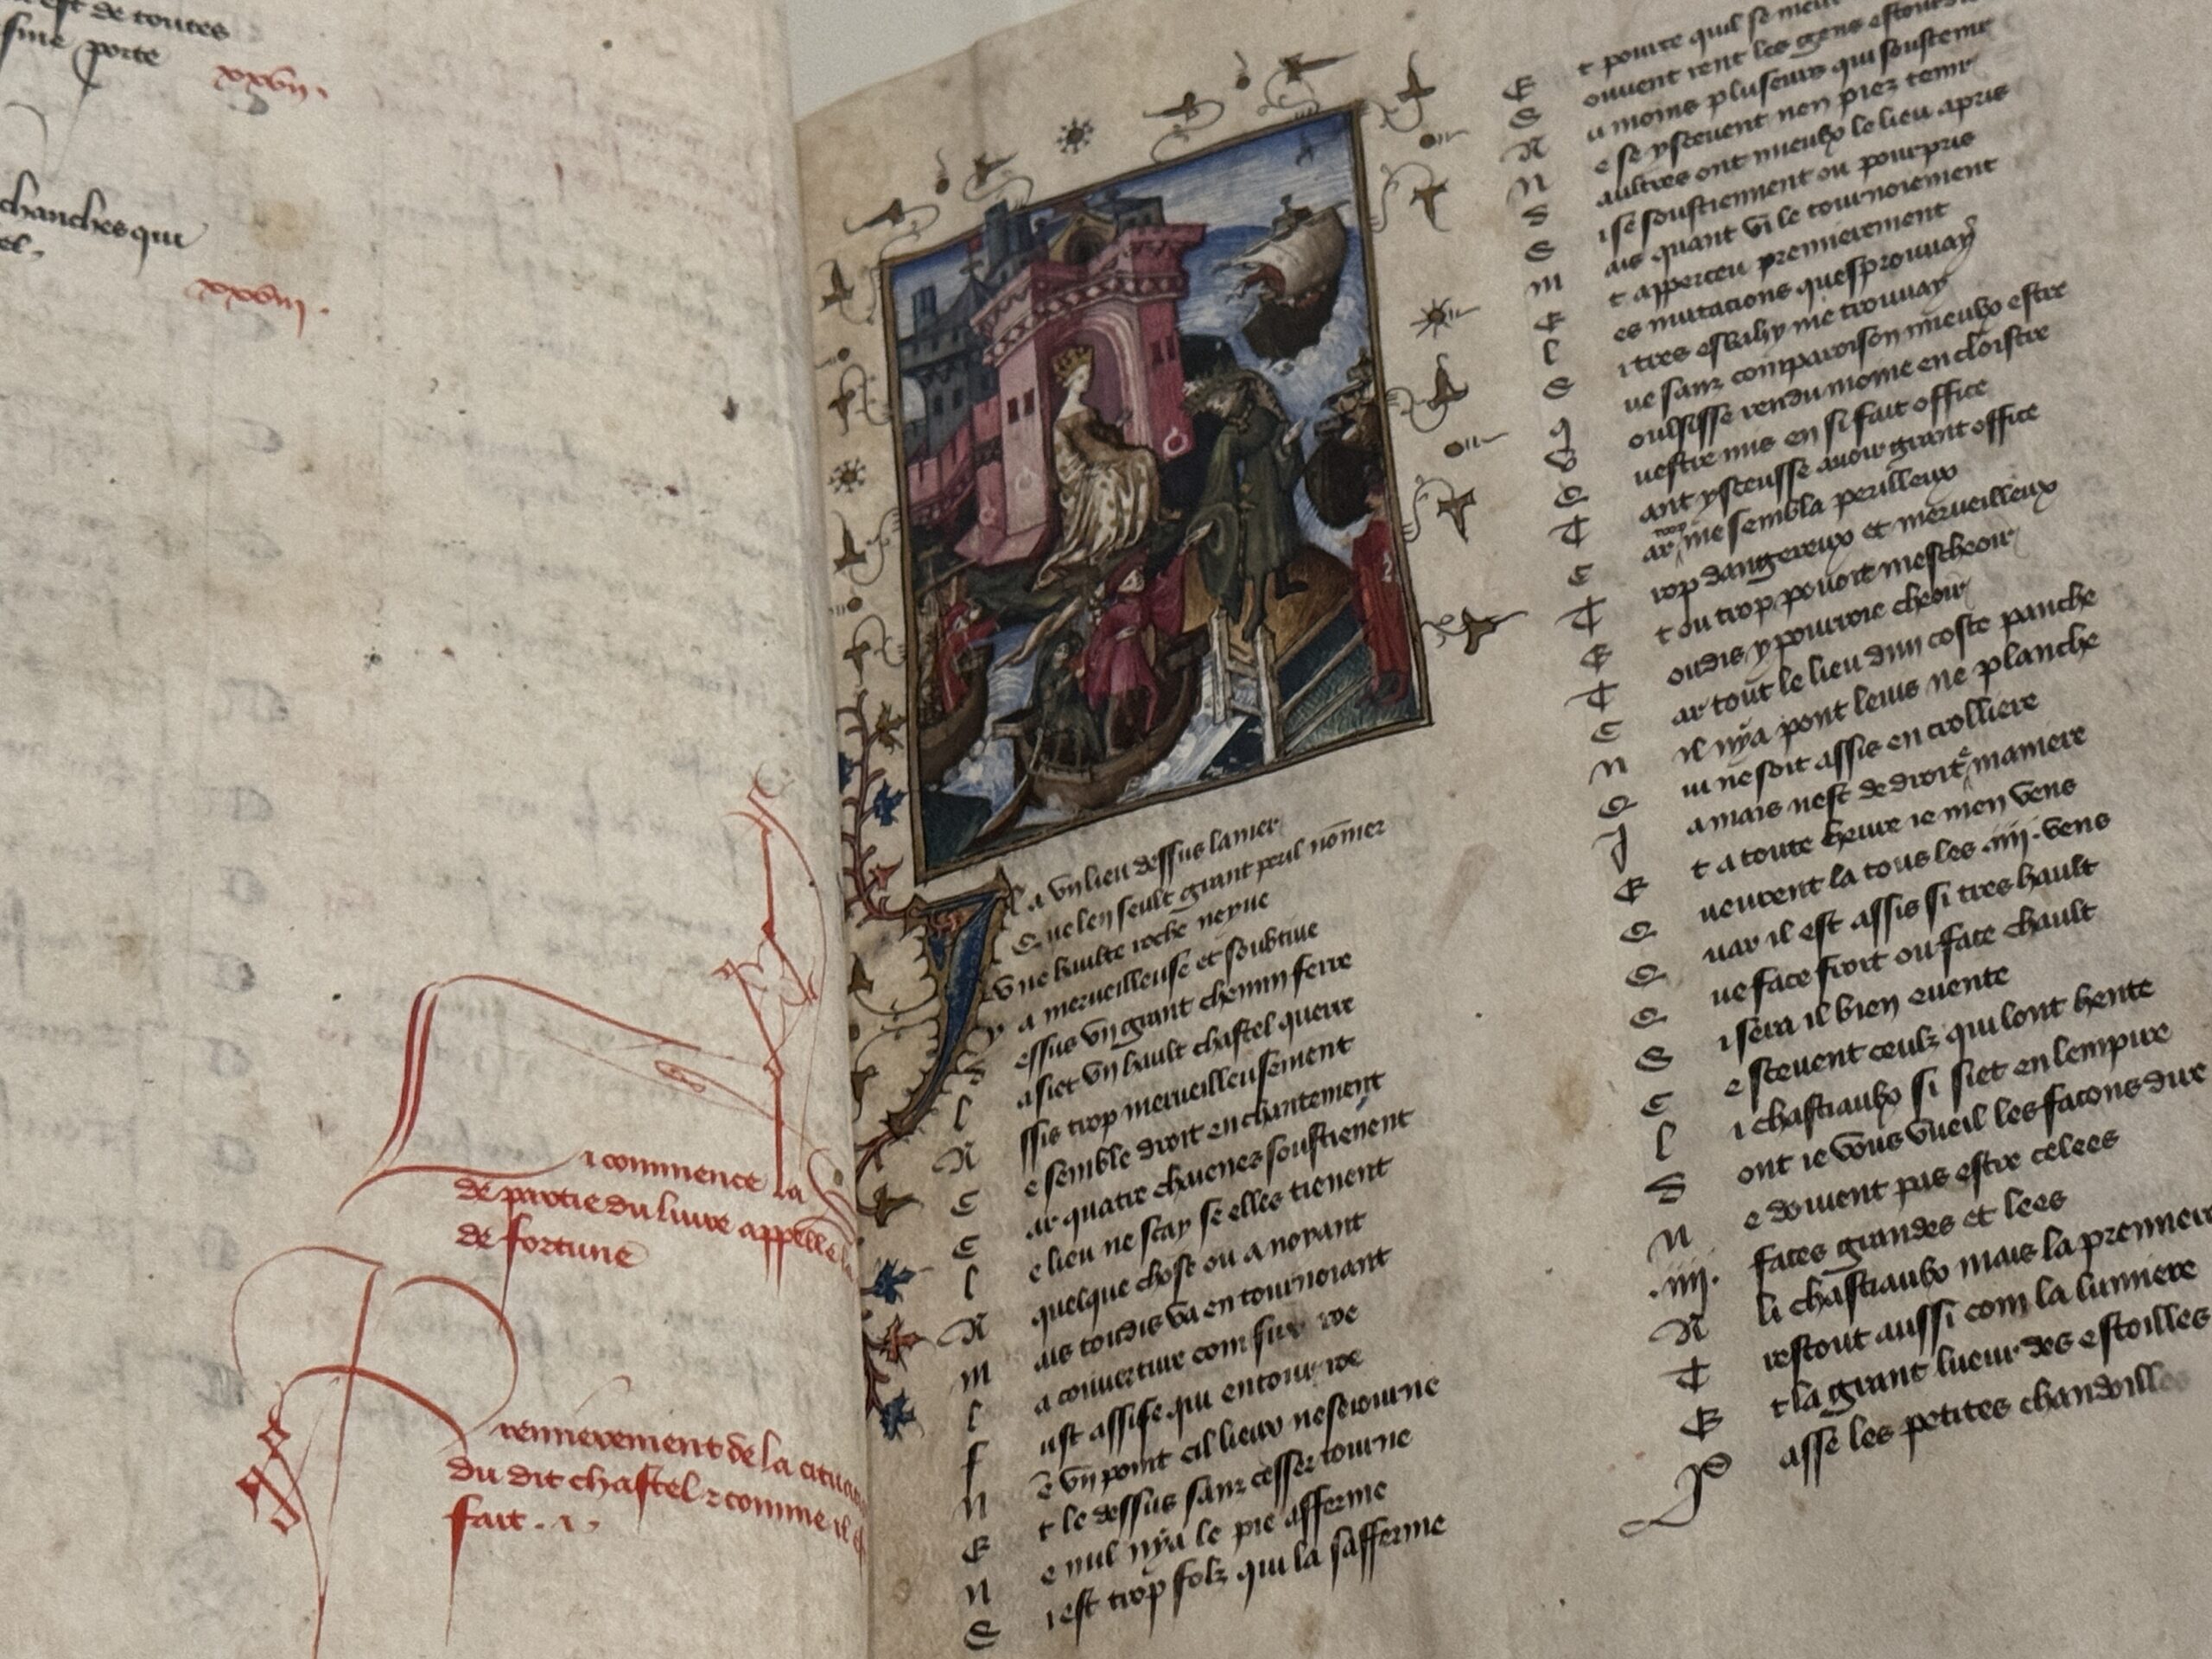 est de toutes
sme porte
xxvii.
chanches qui
el.
xxviii.
Ci commence la
de partie du livre appelle la
de fortune
Premierement de la cituac
du dit chastel ⁊ comme il e
fait .i.
Il a vn lieu dessus la mer
Que len seult grant peril nõmer
Vne haulte roche neyue
Y a merueilleuse et soubtiue
Dessus vn grant chemin ferre
La siet vn hault chastel querre
Assis trop merueilleusement
Ce semble droit enchantement
Car quatre chaienes soustienent
Le lieu ne scay se elles tienent
A quelque chose ou a noyant
Mais toudis va en tournoiant
La couuerture com sur roe
Fust assise qui entour roe
Nẽ vn point cil lieux ne seiourne
Et le dessus sanz cesser tourne
Ne nul nỹa le pie afferme
Si est trop folz qui la safferme
Et pource quil se meut
Souuent rent les gens estourdis
Au moins pluseurs qui soustenir
Ne se ysceuent nen piez tenir
Saultres ont mieulx le lieu apris
Si se soustiennent ou pourpris
Mais quant vi le tournoiement
Et apperceu premierement
Les mutacions quesprouuay
Si tres esbahy me trouuay
Que sanz comparoison mieulx estre
Voulsisse rendu moine en cloistre
Questre mis en si fait office
Tant ysceusse auoir grant office
Car trop me sembla perilleux
Trop dangereux et merueilleux
Et ou trop pouoit mescheoir
Toudis y pourroie cheoir
Car tout le lieu dun coste panche
Il nỹa pont leuis ne planche
Qui ne soit assis en crolliere
Jamais nest de droite maniere
Et a toute heure ie men vens
Queurent la tous les .iiii. vens
Quar il est assis si tres hault
Que face froit ou face chault
Si sera il bien euente
Ce sceuent ceulz qui lont hente
Li chastiaulx si siet en lempire
Dont ie vous vueil les facons dire
Ne doiuent pas estre celees
.iiii. faces grandes et lees
A li chastiaulx mais la premiere
Trestout aussi com la lumiere
Et la grant lueur des estoilles
Passe les petites chandoilles